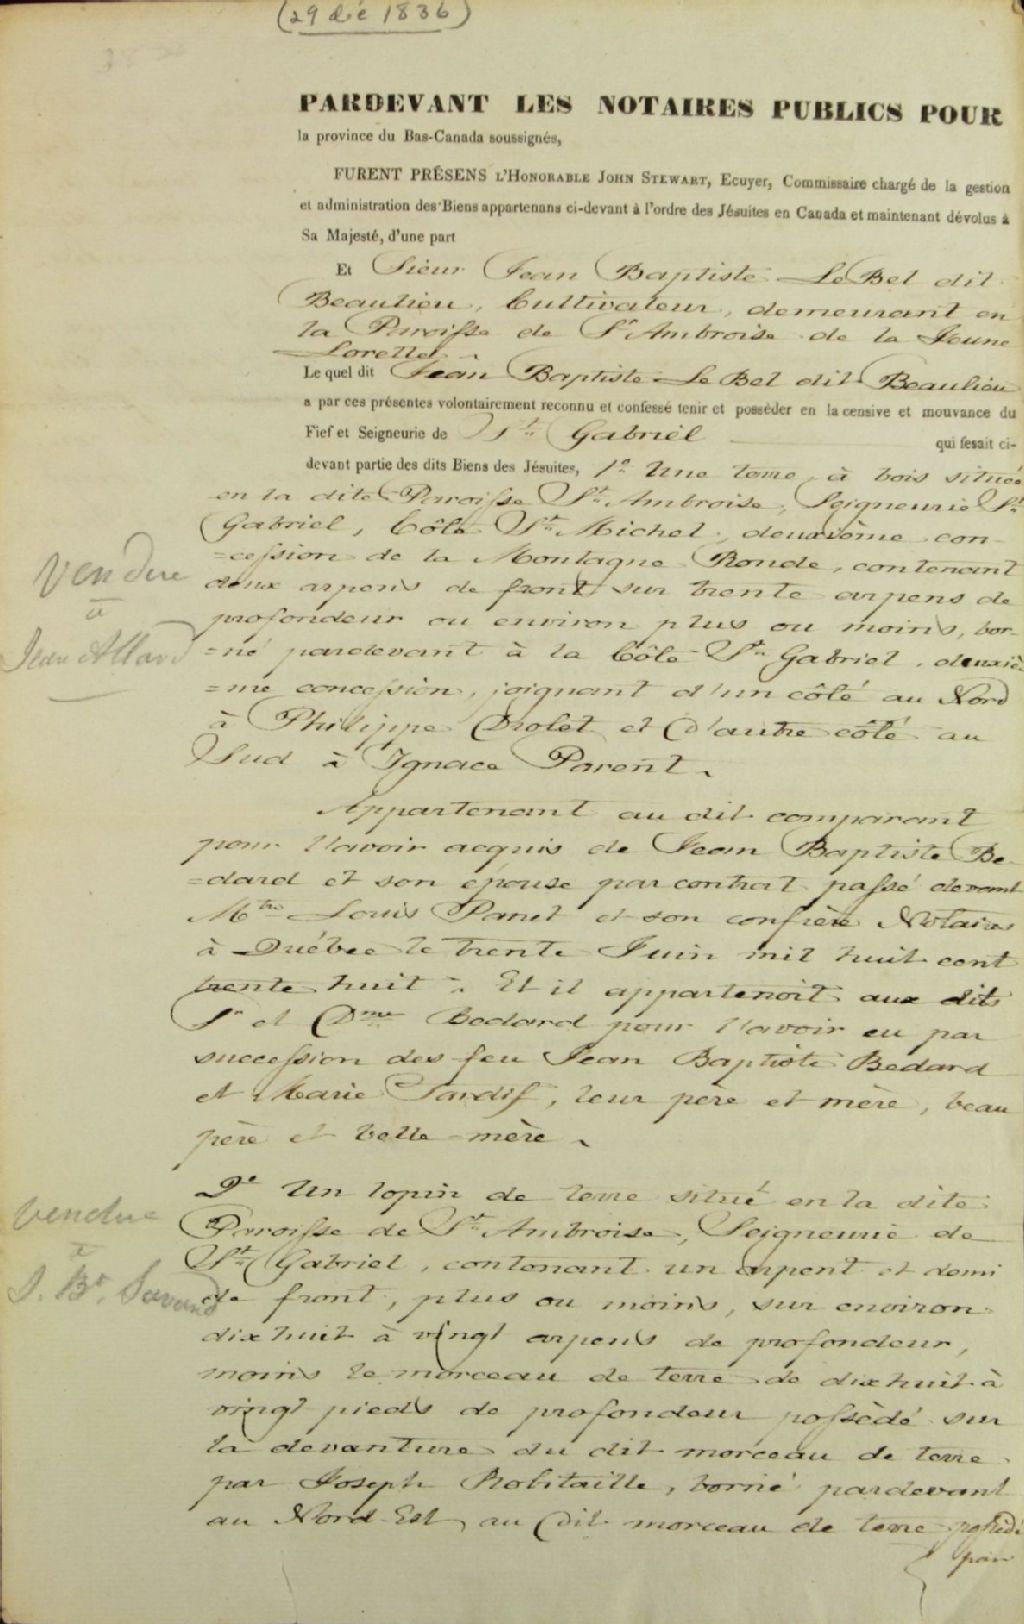 (29 déc 1836)
PARDEVANT LES NOTAIRES PUBLICS POUR
la province du Bas-Canada soussignés,
FURENT PRÉSENS L'HONORABLE JOHN STEWART, Ecuyer, Commissaire chargé de la gestion
et administration des Biens appartenans ci-devant à l'ordre des Jésuites en Canada et maintenant dévolus à
Sa Majesté, d'une part
Et Sieur Jean Baptiste Le Bel dit
Beaulieu, Cultivateur, demeurant en
la Paroisse de St Ambroise de la Jeune
Lorette.
Le quel dit Jean Baptiste Le Bel dit Beaulieu
a par ces présentes volontairement reconnu et confessé tenir et posséder en la censive et mouvance du
Fief et Seigneurie de St Gabriel qui fesait ci-
devant partie des dits Biens des Jésuites, 1o Une terre à bois située
en la dite Paroisse St Ambroise, Seigneurie St
Gabriel, Côte St Michel, deuxième con-
=cession de la Montagne Ronde, contenant
deux arpens de front sur trente arpens de
profondeur ou environ plus ou moins, bor-
=né pardevant à la Côte St Gabriel, deuxiè-
=me concession, joignant d'un côté au Nord
à Philippe Drolet et d'autre côté au
Sud à Ignace Parent.
Vendue
à
Jean Allard
Appartenant au dit comparant
pour l'avoir acquis de Jean Baptiste Be-
=dard et son épouse par contrat passé devant
Mtre Louis Panet et son confrère Notaires
à Québec le trente Juin mil huit cent
trente huit. Et il appartenoit aux dits
Sr et Dme Bedard pour l'avoir eu par
succession des feu Jean Baptiste Bedard
et Marie Tardif, leur père et mère, beau
père et belle-mère.
2o Un lopin de terre situé en la dite
Paroisse de St Ambroise, Seigneurie de
St Gabriel, contenant un arpent et demi
de front, plus ou moins, sur environ
dix huit à vingt arpens de profondeur,
moins le morceau de terre de dix huit à
vingt pieds de profondeur possèdé sur
la devanture du dit morceau de terre
par Joseph Robitaille, borné pardevant
au Nord Est, au dit morceau de terre possèdé
par
Vendue
à
J. Bte Savard